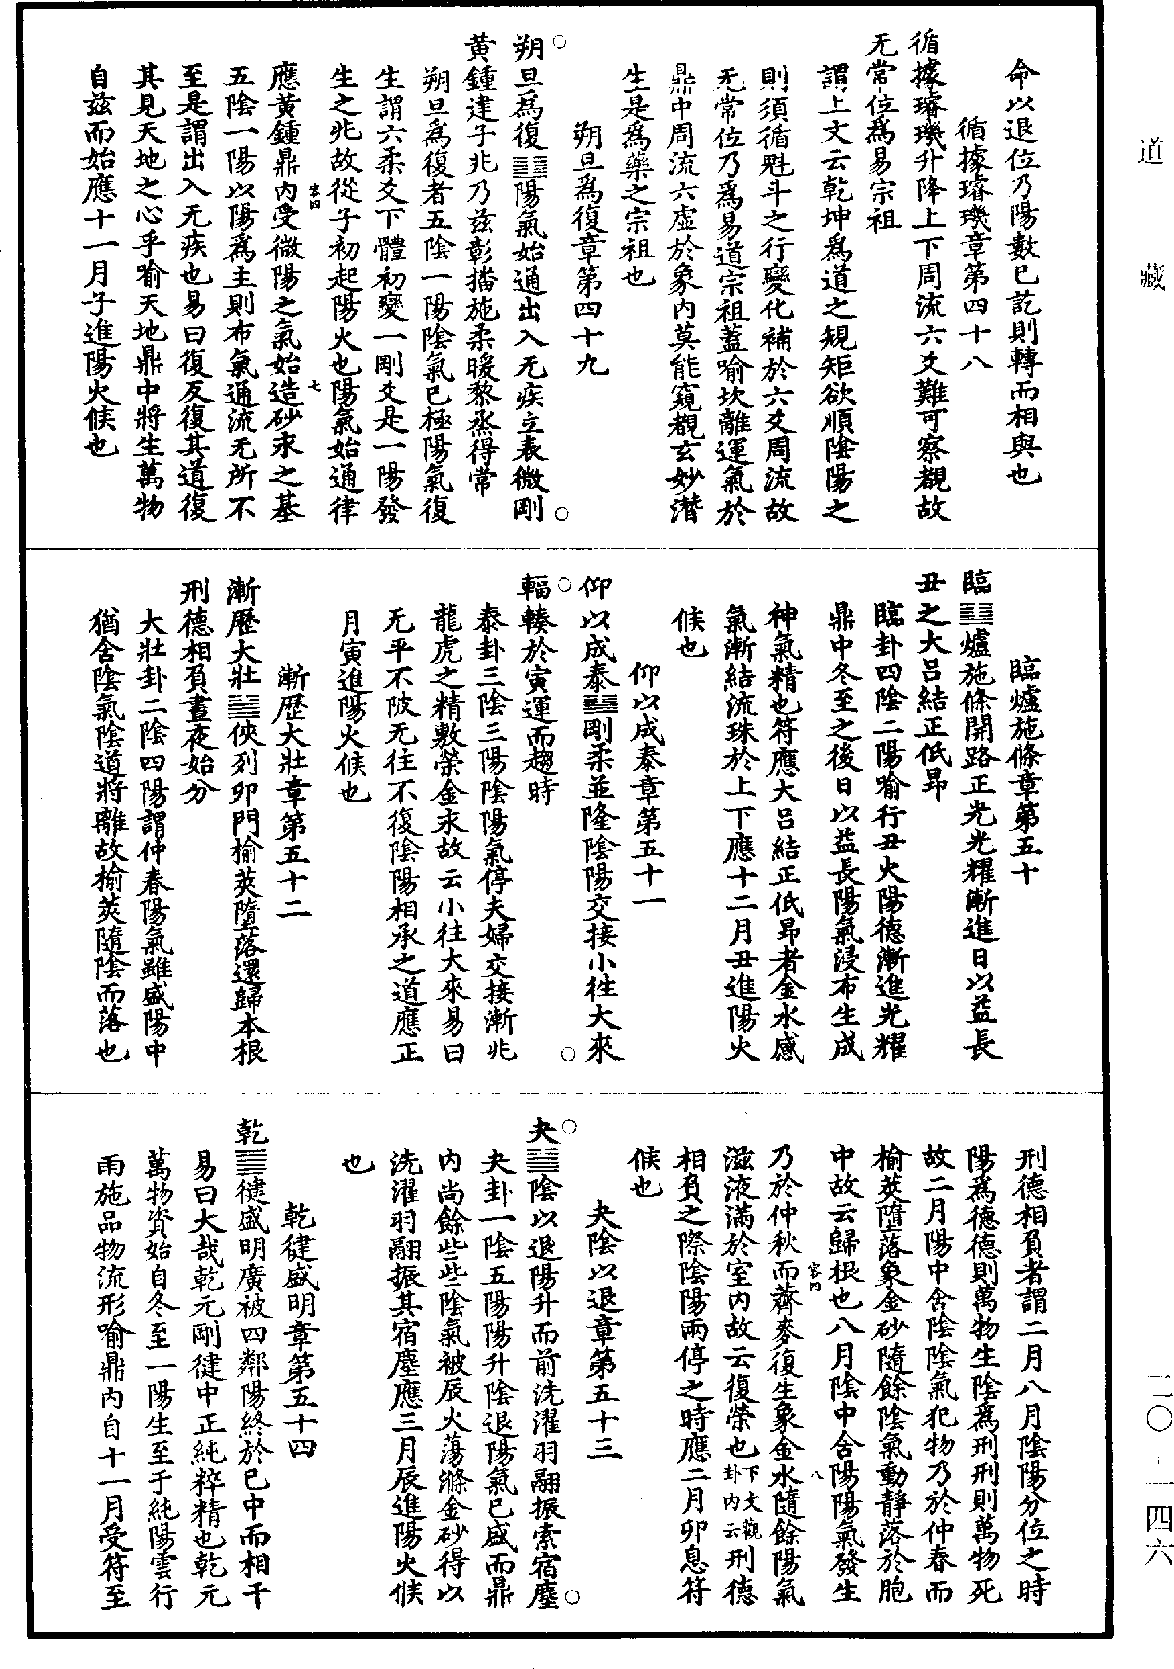 道藏
二〇-一四六
命以退位乃陽數已訖則轉而相與也
循據璿璣章第四十八
循據璿璣升降上下周流六爻難可察覩故
无常位為易宗祖
謂上文云乾坤為道之規矩欲順陰陽之
則須循魁斗之行變化補於六爻周流故
无常位乃為易道宗祖蓋喻坎離運氣於
鼎中周流六虛於象內莫能窺覩玄妙潛
生是為藥之宗祖也
朔旦為復章第四十九
朔旦為復䷗陽氣始通出入无疾立表微剛
黃鍾建子兆乃茲彰播施柔暖黎蒸得常
朔旦為復者五陰一陽陰氣已極陽氣復
生謂六柔爻下體初變一剛爻是一陽發
生之兆故從子初起陽火也陽氣始通律
應黃鍾鼎內受微陽之氣始造砂汞之基
容四
七
五陰一陽以陽為主則布氣通流无所不
至是謂出入无疾也易曰復反復其道復
其見天地之心乎喻天地鼎中將生萬物
自茲而始應十一月子進陽火候也
臨爐施條章第五十
臨䷒爐施條開路正光光耀漸進日以益長
丑之大呂結正低昂
臨卦四陰二陽喻行丑火陽德漸進光耀
鼎中冬至之後日以益長陽氣浸布生成
神氣精也符應大呂結正低昂者金水感
氣漸結流珠於上下應十二月丑進陽火
候也
仰以成泰章第五十一
仰以成泰䷊剛柔並隆陰陽交接小往大來
輻輳於寅運而趨時
泰卦三陰三陽陰陽氣停夫婦交接漸兆
龍虎之精敷榮金汞故云小往大來易曰
无平不陂无往不復陰陽相承之道應正
月寅進陽火候也
漸歷大壯章第五十二
漸歷大壯䷡俠列卯門榆莢墮落還歸本根
刑德相負晝夜始分
大壯卦二陰四陽謂仲春陽氣雖盛陽中
猶含陰氣陰道將離故榆莢隨陰而落也
刑德相負者謂二月八月陰陽分位之時
陽為德德則萬物生陰為刑刑則萬物死
故二月陽中含陰陰氣犯物乃於仲春而
榆莢墮落象金砂隨餘陰氣動靜落於胞
中故云歸根也八月陰中含陽陽氣發生
容四
八
乃於仲秋而薺麥復生象金水隨餘陽氣
滋液滿於室內故云復榮也下文觀卦內云刑德
相負之際陰陽兩停之時應二月卯息符
候也
夬陰以退章第五十三
夬䷪陰以退陽升而前洗濯羽翮振索宿塵
夬卦一陰五陽陽升陰退陽氣已盛而鼎
內尚餘些些陰氣被辰火蕩滌金砂得以
洗濯羽翮振其宿塵應三月辰進陽火候
也
乾健盛明章第五十四
乾䷀健盛明廣被四鄰陽終於巳中而相干
易曰大哉乾元剛健中正純粹精也乾元
萬物資始自冬至一陽生至于純陽雲行
雨施品物流形喻鼎內自十一月受符至